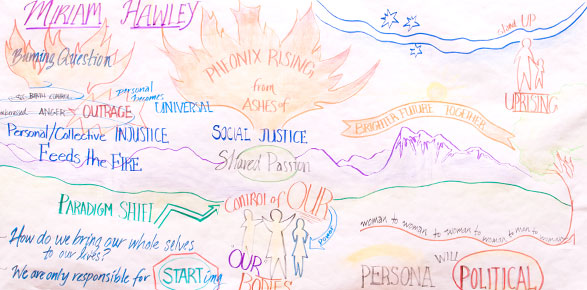 MIRIAM HAWLEY
Stand UP
Burning Question
PHEONIX RISING
from
ASHES of
BIRTH CONTROL
personal
Incomes
ANGER OUTRAGE
UNIVERSAL
UPRISING
BRIGHTER FUTURE TOGETHER
Personal/Collective INJUSTICE
SOCIAL JUSTICE
Feeds the FIRE
Shared Passion
PARADIGM SHIFT
CONTROL of OUR
Power
woman to woman to woman to woman to man to woman
How do we bring our whole selves
to our lives?
"OUR
BODIES
We are only responsible for STARTing
PERSONA WILL POLITICAL